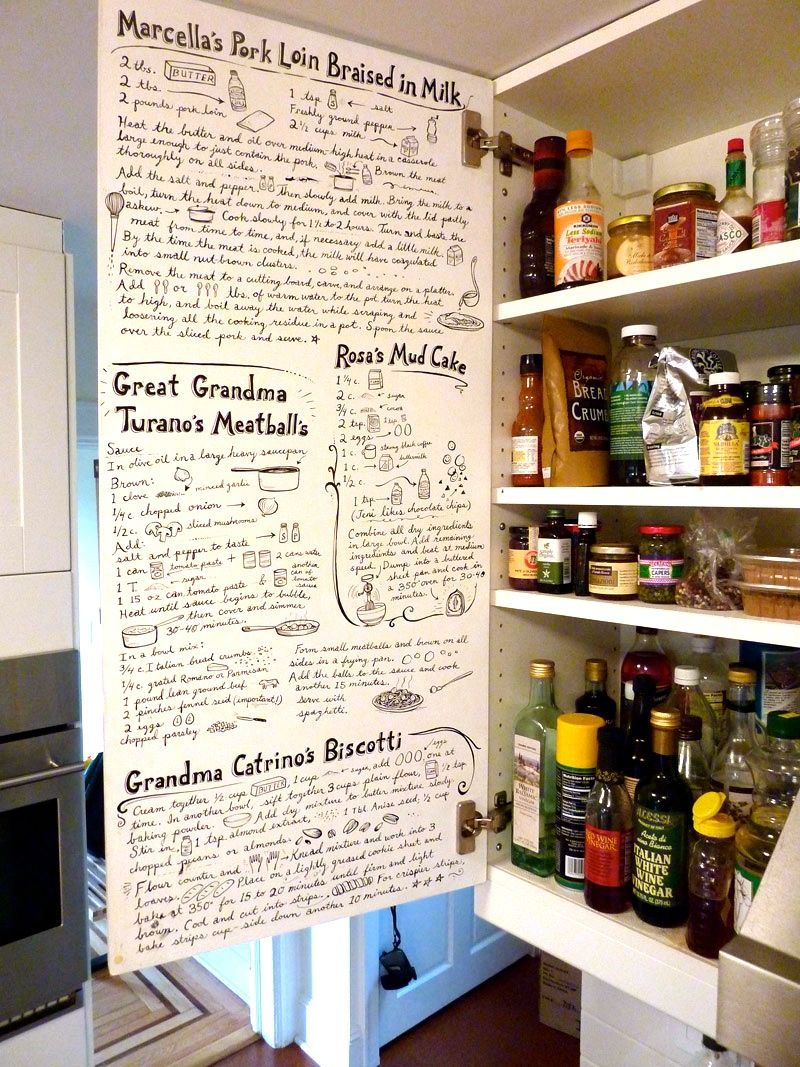 Marcella's Pork Loin Braised in Milk
2 tbs. BUTTER
2 tbs.
2 pounds pork loin
1 tsp S ← salt
Freshly ground pepper →
2 1/2 cups milk
Heat the butter and oil over medium-high heat in a casserole
large enough to just contain the pork. Brown the meat
thoroughly on all sides.
Add the salt and pepper Then slowly add milk. Bring the milk to a
boil, turn the heat down to medium, and cover with the lid partly
askew. → Cook slowly for 1 1/2 to 2 hours. Turn and baste the
meat from time to time, and, if necessary add a little milk.
By the time the meat is cooked, the milk will have coagulated
into small nut-brown clusters.
Remove the meat to a cutting board, carve, and arrange on a platter.
Add or tbs. of warm water to the pot turn the heat
to high, and boil away the water while scraping and
loosening all the cooking residue in a pot. Spoon the sauce
over the sliced pork and serve.
Great Grandma
Turano's Meatball's
Sauce
In olive oil in a large heavy saucepan
Brown:
1 clove minced garlic
1/4 c. chopped onion →
1/2 c. sliced mushrooms
Add:
salt and pepper to taste → S P
1 can tomato paste + 2 cans water
1 T ← sugar
1 15 oz can tomato paste & another can of tomato sauce
Heat until sauce begins to bubble,
then cover and simmer
30-40 minutes.
In a bowl mix:
3/4 c. Italian bread crumbs
1/4 c. grated Romano or Parmesan
1 pound lean ground beef
2 pinches fennel seed (important!)
2 eggs
chopped parsley
Form small meatballs and brown on all
sides in a frying pan.
Add the balls to the sauce and cook
another 15 minutes.
serve with
spaghetti.
Rosa's Mud Cake
1 3/4 c.
2 c. sugar
3/4 c. cocoa
2 tsp. 1 tsp. S
2 eggs
1 c. strong black coffee
1 c. buttermilk
1/2 c.
1 tsp.
(Jeni likes chocolate chips)
Combine all dry ingredients
in large bowl. Add remaining
ingredients and beat at medium
speed. Dump into a buttered
sheet pan and cook in
a 350° oven for 30-40
minutes.
Grandma Catrino's Biscotti
Cream together 1/2 cup BUTTER, 1 cup sugar, add eggs one at
time. In another bowl, sift together 3 cups plain flour, 1/2 tsp.
baking powder. Add dry mixture to butter mixture slowly.
Stir in, 1 tsp. almond extract, 1 Tbl. Anise seed, 1/2 cup
chopped pecans or almonds.
Flour counter and Knead mixture and work into 3
loaves. Place on a lightly greased cookie sheet and
bake at 350° for 15 to 20 minutes until firm and light
brown. Cool and cut into strips. For crispier strips,
bake strips cup-side down another 10 minutes.
KIKKOMAN
Less Sodium
Teriyaki
TABASCO
Organic
BREAD
CRUMBS
VANILLA
CAPERS
WHITE
BALSAMIC
Nutrition Facts
RED WINE
VINEGAR
ALESSI
ITALIAN
WHITE
WINE
VINEGAR